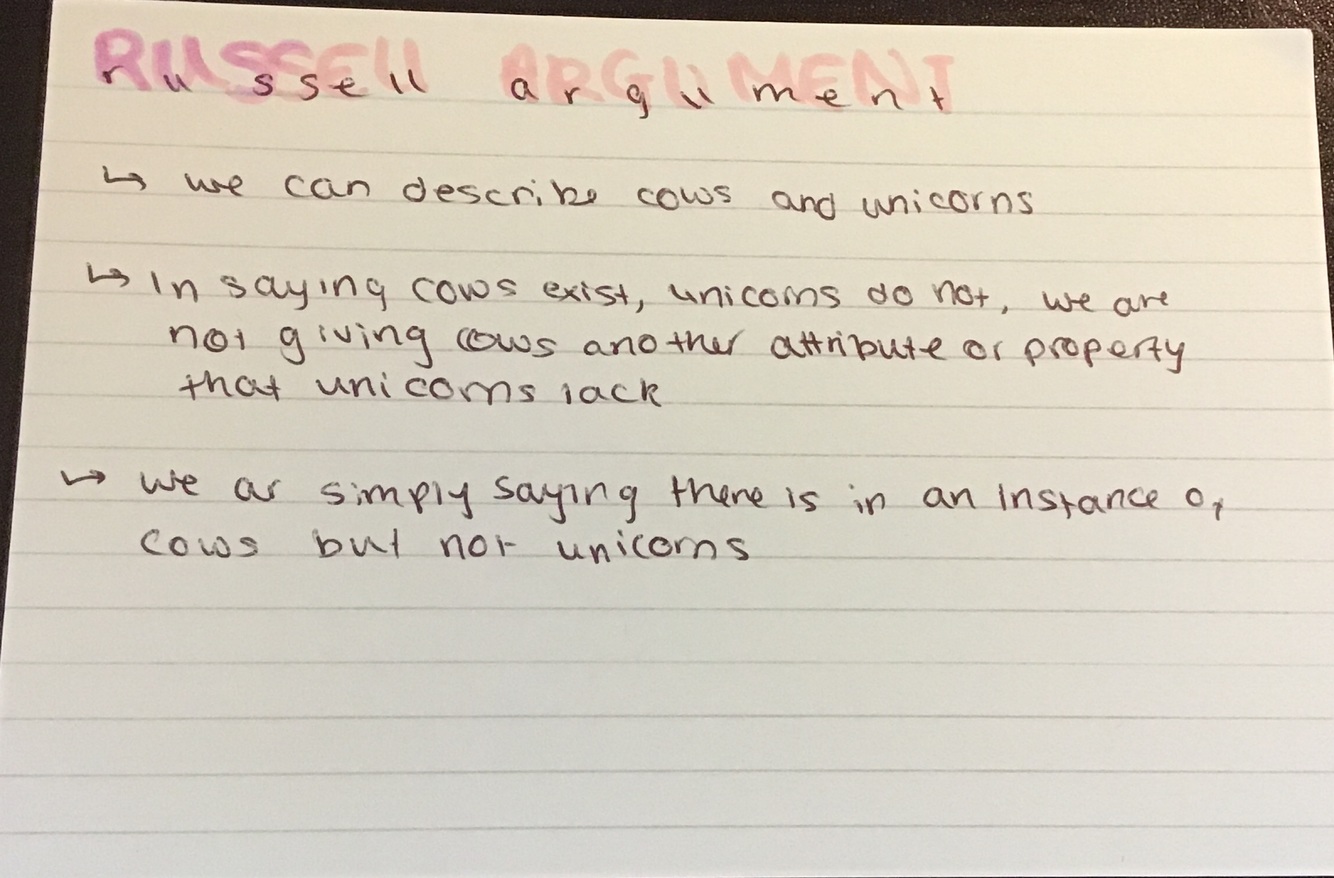 RUSSELL ARGUMENT
russell argument
↳ we can describe cows and unicorns
↳ In saying cows exist, unicorns do not, we are
not giving cows another attribute or property
that unicorns lack
↳ we ar simply saying there is in an instance of
cows but not unicorns